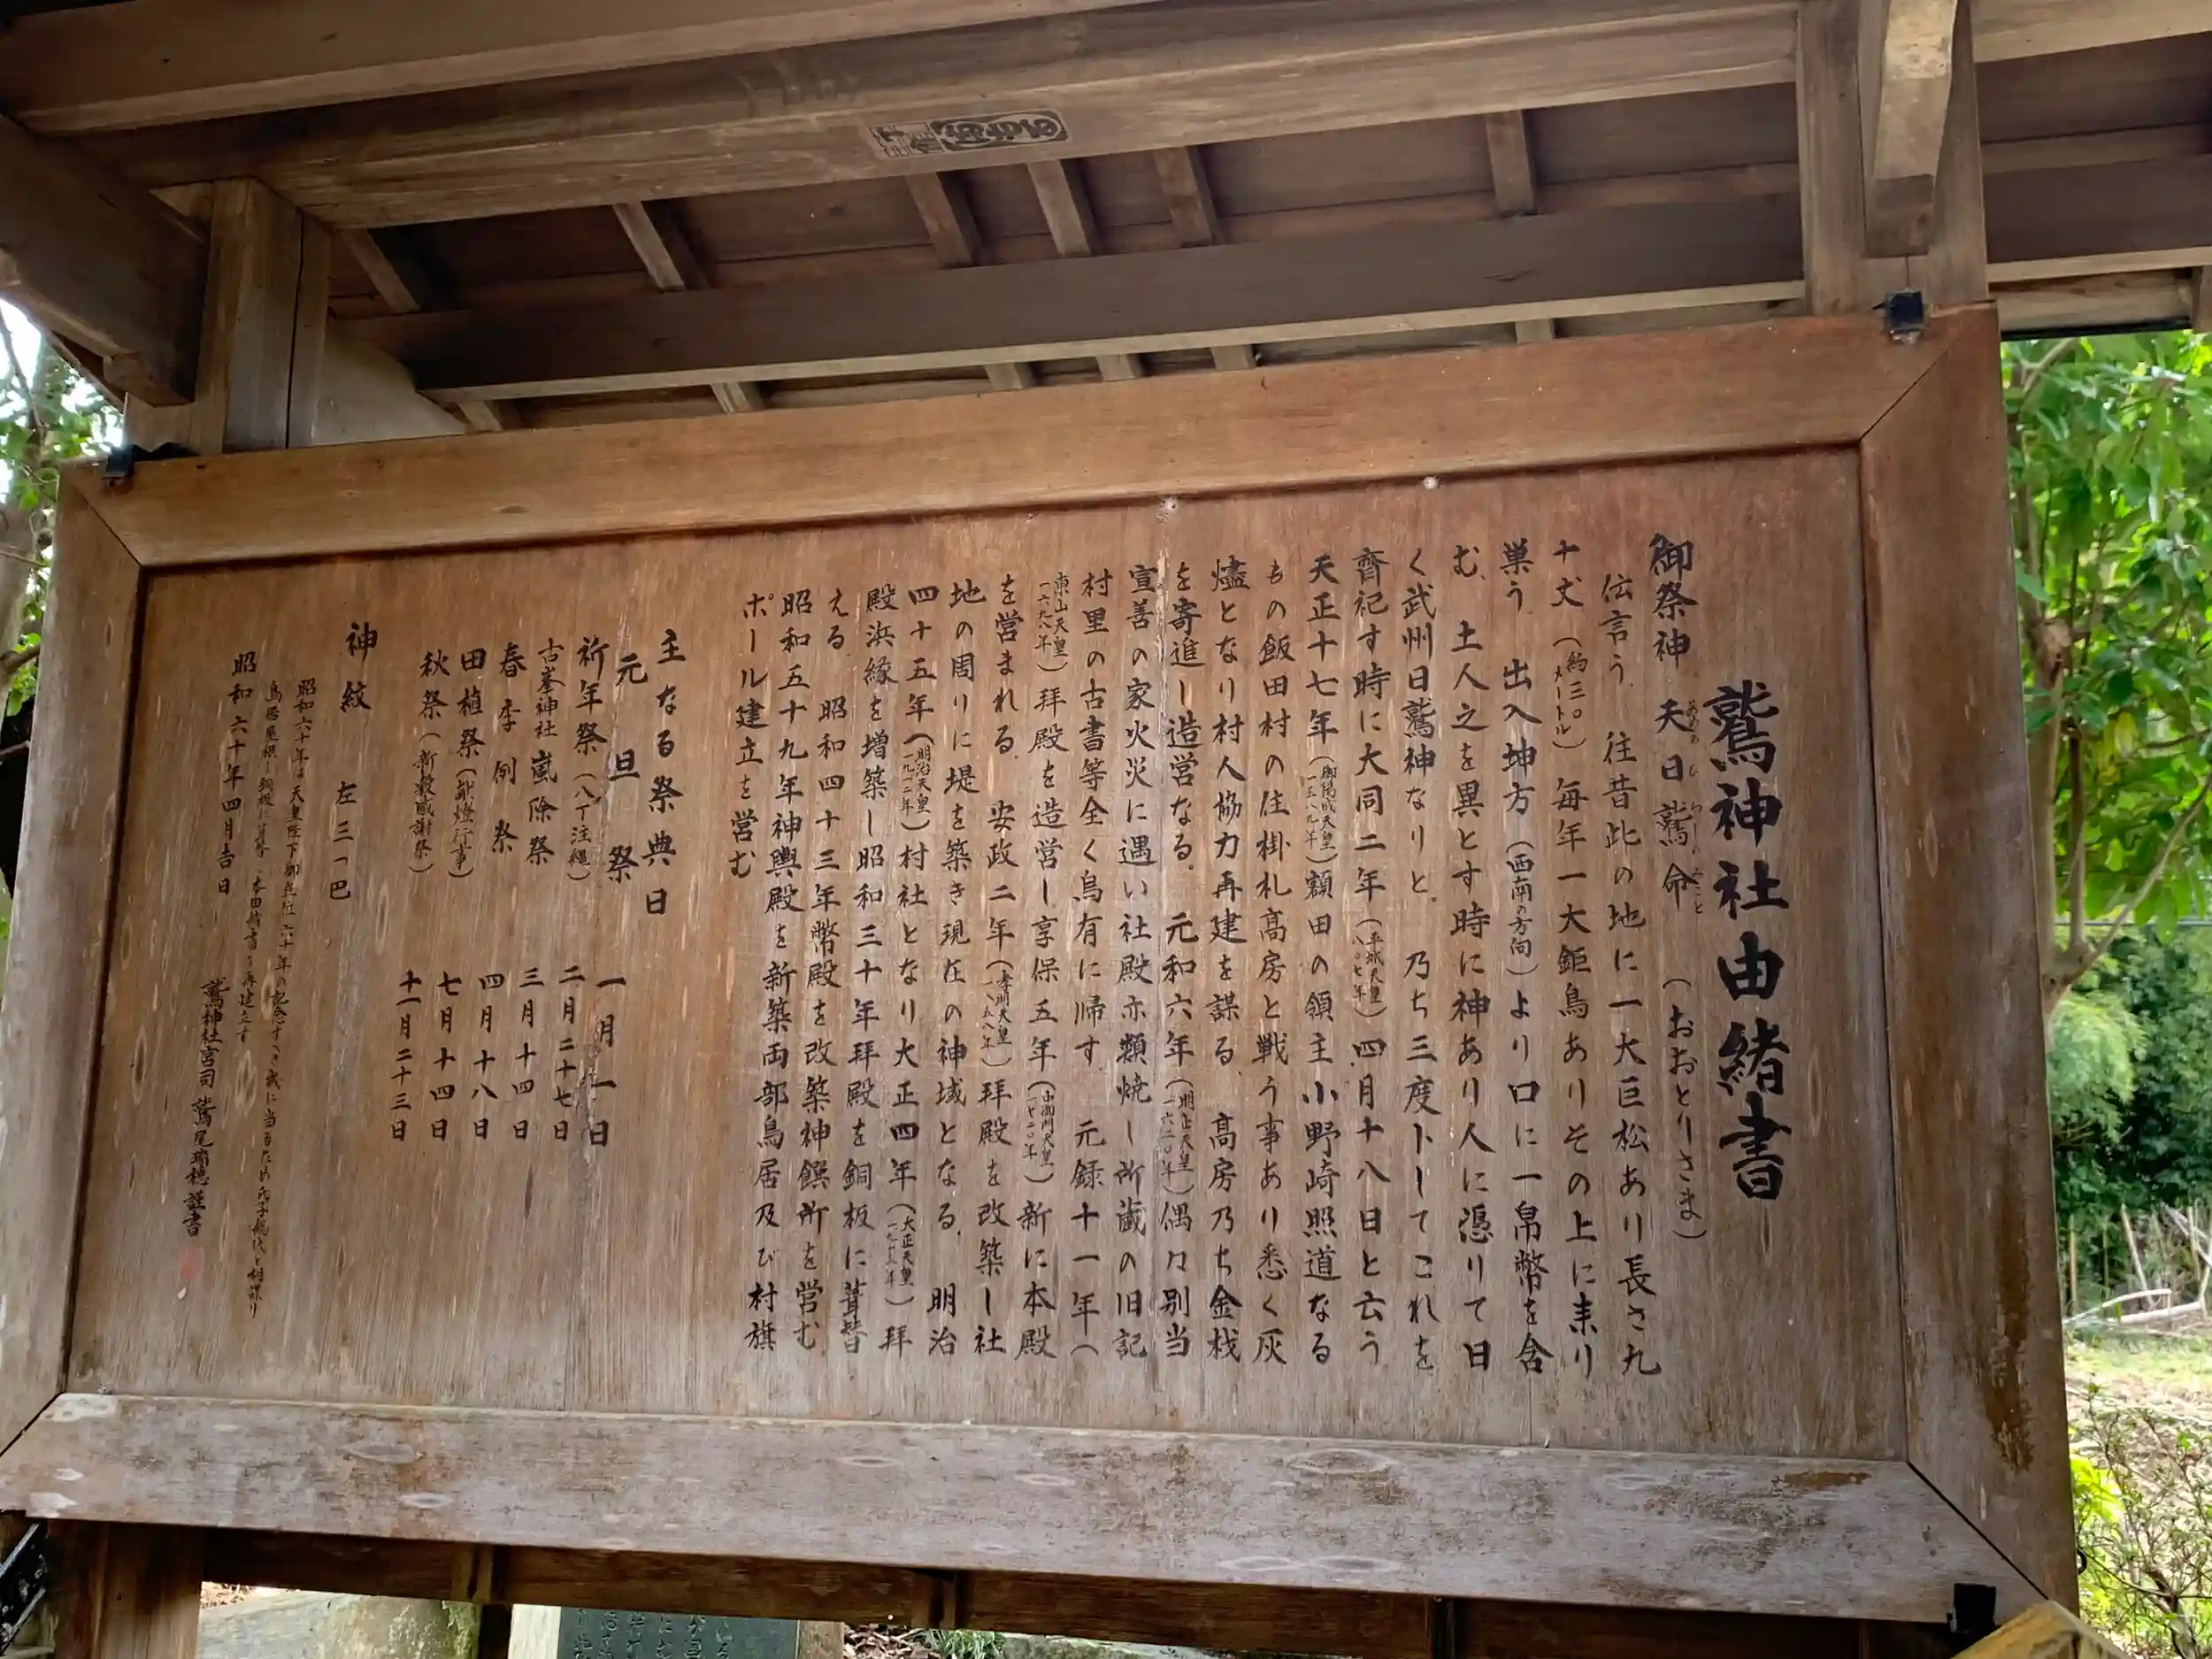 鷲神社由緒書
御祭神 天日鷲命 (おおとりさま)
伝言う 往昔此の地に一大巨松あり長さ九
十丈(約三〇メートル)毎年一大鉅鳥ありその上に来り
巣う 出入坤方(西南の方向)より口に一帛幣を含
む、土人之を異とす時に神あり人に憑りて曰
く武州日鷲神なりと、乃ち三度卜してこれを
齊祀す時に大同二年(平城天皇八〇七年)四月十八日と云う
天正十七年(御陽成天皇一五八九年)額田の領主小野崎照道なる
もの飯田村の住掛札高房と戦う事あり悉く灰
燼となり村人協力再建を謀る 高房乃ち金栈
を寄進し造営なる。 元和六年(明正天皇一六二〇年)偶々別当
宣善の家火災に遇い社殿亦類焼し所蔵の旧記
村里の古書等全く烏有に帰す 元録十一年(
東山天皇一六九八年)拝殿を造営し享保五年(中御門天皇一七二〇年)新に本殿
を営まれる 安政二年(孝明天皇一八五八年)拝殿を改築し社
地の周りに堤を築き現在の神域となる、明治
四十五年(明治天皇一九一二年)村社となり大正四年(大正天皇一九一五年)拝
殿浜縁を増築し昭和三十年拝殿を銅板に葺替
える 昭和四十三年幣殿を改築神饌所を営む
昭和五十九年神輿殿を新築両部鳥居及び村旗
ポール建立を営む
主なる祭典日
元旦祭 一月一日
祈年祭(八丁注縄) 二月二十七日
古峯神社嵐除祭 三月十四日
春季例祭 四月十八日
田植祭(献燈行事) 七月十四日
秋祭(新穀感謝祭) 十一月二十三日
神紋 左三つ巴
昭和六十年は天皇陛下御在位六十年の記念すべき歳に当るため氏子総代と相謀り
鳥居屋根を銅板に葺替 由緒書を再建立す
昭和六十年四月吉日
鷲神社宮司 鷲尾瑞穂謹書